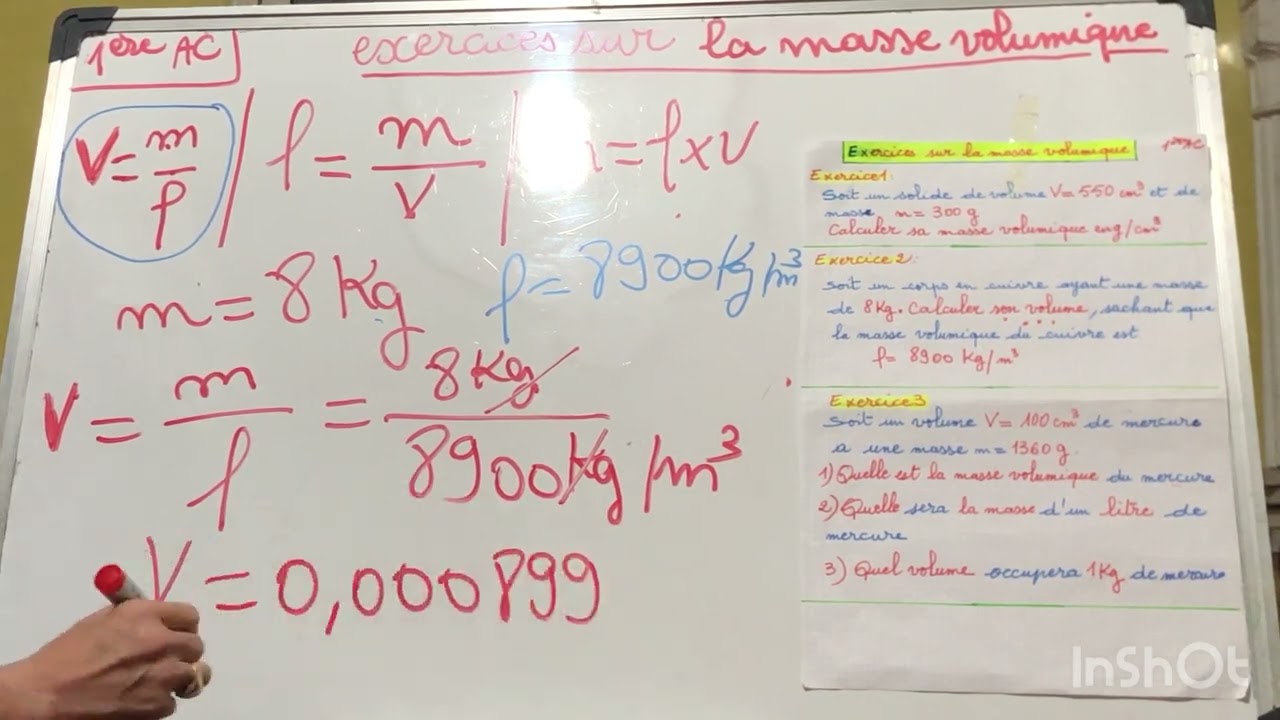 1ère AC
exercices sur la masse volumique
V = m/ρ | ρ = m/V | = ρ x V
m = 8 Kg
ρ = 8900 Kg/m³
V = m/ρ = 8 Kg / 8900 Kg/m³
V = 0,000899
Exercices sur la masse volumique
1ère AC
Exercice 1:
Soit un solide de volume V= 550 cm³ et de
masse m = 300 g
Calculer sa masse volumique en g/cm³
Exercice 2:
Soit un corps en cuivre ayant une masse
de 8 Kg. Calculer son volume, sachant que
la masse volumique du cuivre est
ρ= 8900 Kg/m³
Exercice 3
Soit un volume V= 100 cm³ de mercure
a une masse m = 1360 g.
1) Quelle est la masse volumique du mercure
2) Quelle sera la masse d'un litre de
mercure
3) Quel volume occupera 1 Kg de mercure
InShOt